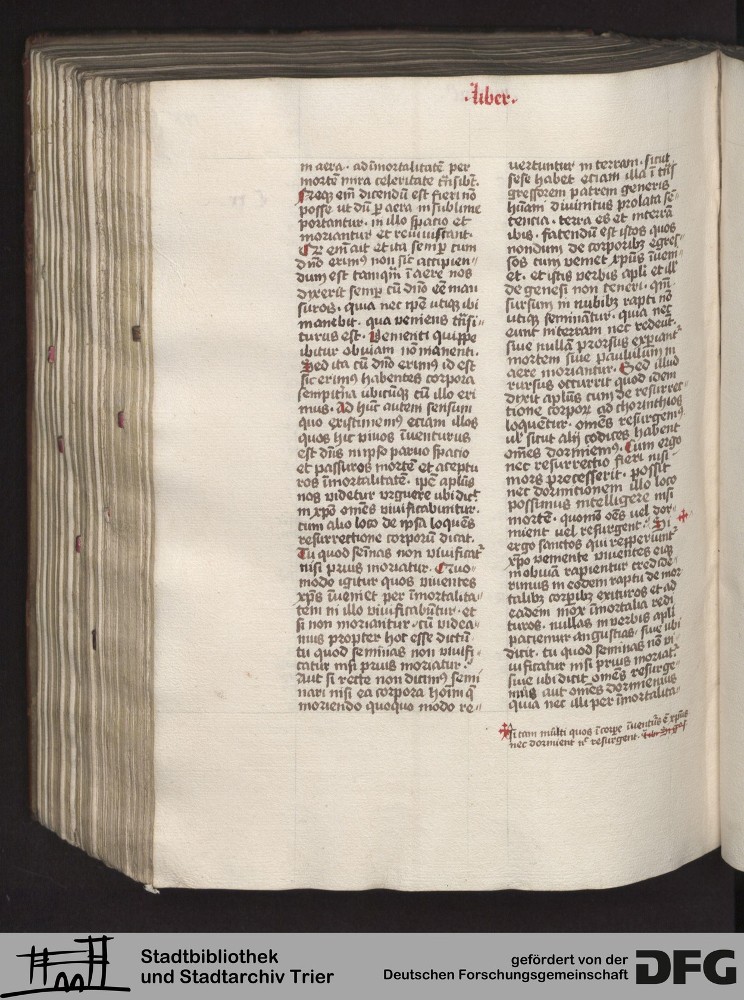 ·liber·
in aera· ad īmortalitatē per
mortē mira celeritate trāsibūt·
Neq; em̄ dicendū est fieri nō
posse ut dū p̲ aera in sublime
portantur· in illo spacio et
moriantur et reviviscant·
Qd̄ em̄ ait et ita semp̲ cum
dn̄o erim9 non sic accipien-
dum est tamq̄m ī aere nos
dixerit semp̲ cū dn̄o eē man
suros· quia nec ip̄e utiq; ibi
manebit· quia veniens trāsi-
turus est· Venienti quippe
ibitur obviam nō manenti·
Sed ita cū dn̄o erim9 id est
sic erim9 habentes corpora
sempit̄na ubicūq; cū illo eri
mus· Ad hūc autem sensum
quo existimem9 eciam illos
quos hic vivos īventurus
est dn̄s in ip̄o parvo spacio
et passuros mortē et acceptu
ros īmortalitatē· ip̄e ap̄lus
nos videtur urguere ubi dicit
in xp̄o om̄es vivificabuntur·
cum alio loco de ip̄a loquēs
resurrectione corporū dicat·
Tu quod semīas non vivificat̄
nisi prius moriatur· Quo-
modo igitur quos viventes
xp̄s īveniet per īmortalita-
tem in illo vivificabūtur· et
si non moriantur· cū videa-
mus propter hoc esse dictū·
tu quod seminas non vivifi-
catur nisi prius moriatur·
Aut si recte non dicim9 semi
nari nisi ea corpora hoīm q̄
moriendo quoquo modo re-
vertuntur in terram· sicut
sese habet eciam illa ī trās
gressorem patrem generis
hūani divinitus prolata sē-
tencia· terra es et in terrā
ibis· fatendū est istos quos
nondum de corporibz egres-
sos cum veniet xp̄us īveni-
et· et istis verbis ap̄li et ill'
de genesi non teneri· qm̄
sursum in nubibz rapti nō
utiq; seminātur· quia nec
eunt in terram nec redeūt·
sive nullā prorsus expiant̄
mortem sive paululum in
aere moriantur· Sed illud
rursus occurrit quod idem
dixit ap̄lus cum de resurrec-
tione corporū ad chorinthios
loquer̄tur· om̄es resurgem9
ul' sicut alij codices habent
om̄es dormiem9· Cum ergo
nec resurrectio fieri nisi
mors precesserit· possit
nec dormitionem illo loco
possimus intelligere nisi
mortē· quomō oēs vel dor-
mient vel resurgent· Si
ergo sanctos qui repperiunt̄
xp̄o veniente viventes eiq;
in obviā rapientur credide-
rimus in eodem raptu de mor
talibz corpibz exituros et ad
eadem mox īmortalia redi
turos· nullas in verbis ap̄li
paciemur angustias· sive ubi
dicit· tu quod seminas nō vi-
vificatur nisi prius moriat̄·
sive ubi dicit om̄es resurge-
mus aut om̄es dormiemus
quia nec illi per īmortalita-
si tam multi quos ī corpe īventur9 ē xp̄us
nec dormient nc̄ resurgent·
Stadtbibliothek
und Stadtarchiv Trier
gefördert von der
Deutschen Forschungsgemeinschaft
DFG